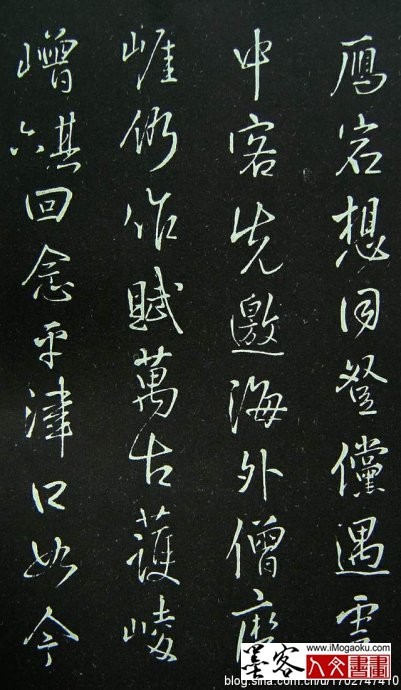 鴈宕想同登儻遇雲
中客先邀海外僧磨
崖仍作賦萬古護崚
嶒其六回念平津口如今
www.iMogaoku.com
墨客
人文書畫
blog.sina.com.cn/u/1702747410